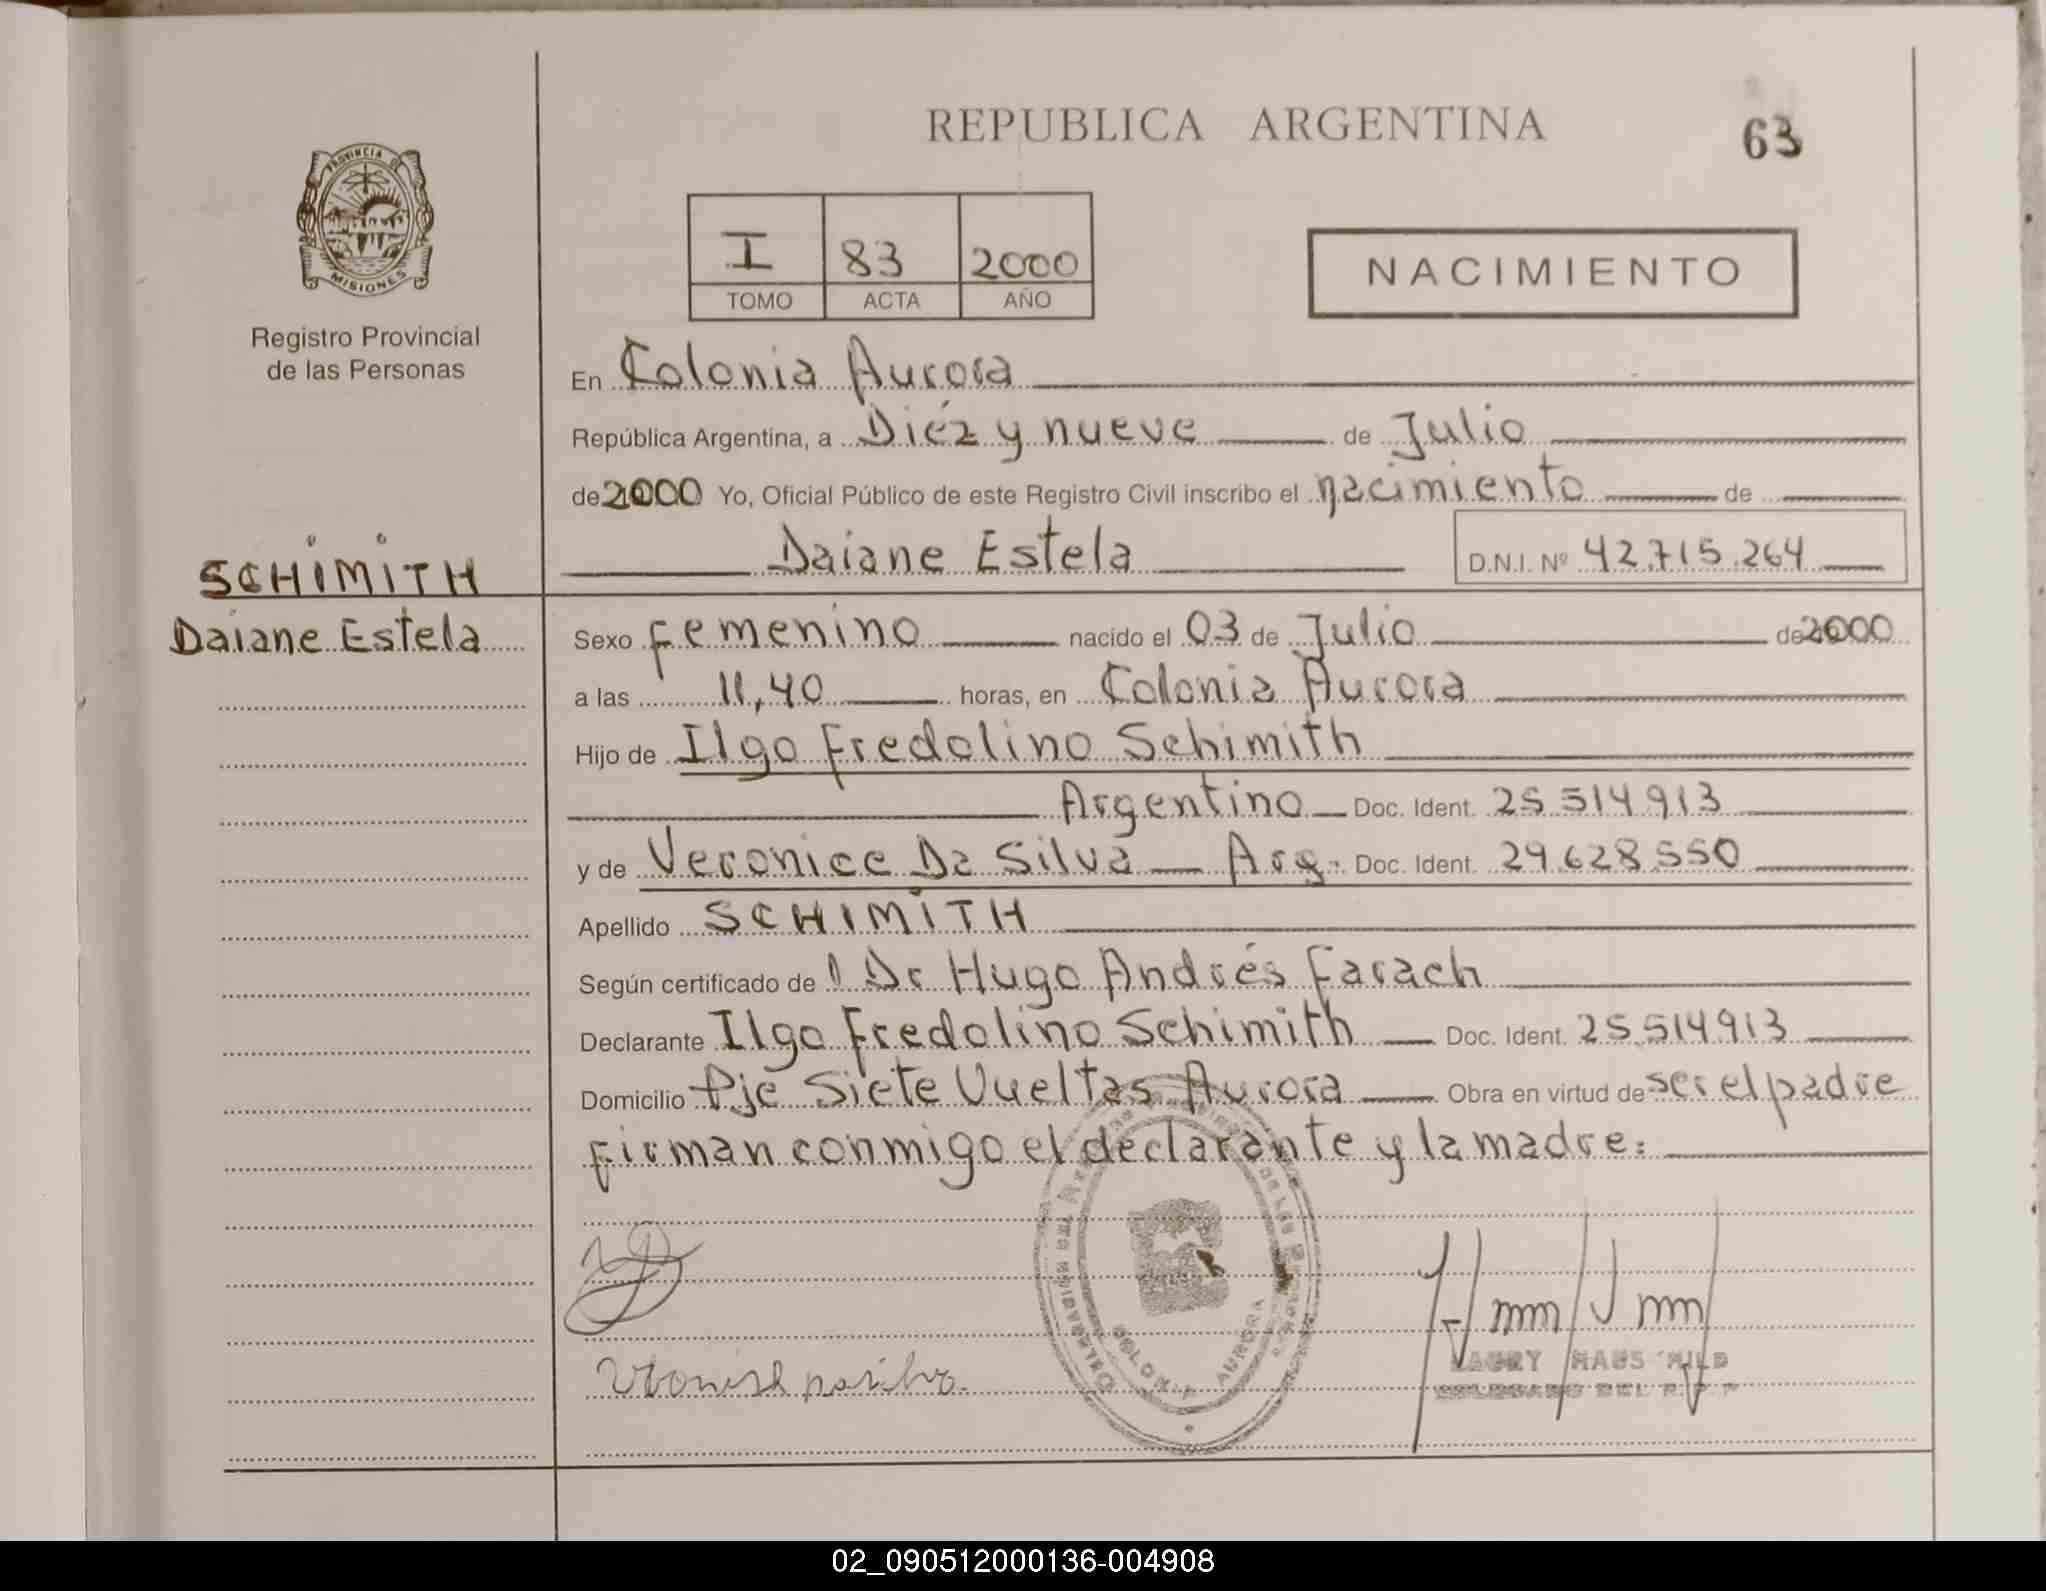 REPUBLICA ARGENTINA
63
PROVINCIA DE
MISIONES
Registro Provincial
de las Personas
I 83 2000
TOMO ACTA AÑO
NACIMIENTO
En Colonia Aurora
República Argentina, a Diéz y nueve de Julio
de 2000 Yo, Oficial Público de este Registro Civil inscribo el nacimiento de
Daiane Estela D.N.I. Nº 42.715.264
SCHIMITH
Daiane Estela
Sexo Femenino nacido el 03 de Julio de 2000
a las 11,40 horas, en Colonia Aurora
Hijo de Ilgo Fredolino Schimith
Argentino Doc. Ident. 25.514.913
y de Veronice Da Silva Arg. Doc. Ident. 29.628.550
Apellido SCHIMITH
Según certificado de l Dr Hugo Andrés Farach
Declarante Ilgo Fredolino Schimith Doc. Ident. 25.514.913
Domicilio Pje Siete Vueltas Aurora Obra en virtud de ser el padre
firman conmigo el declarante y la madre:
COLONIA AURORA
DELEGADO DEL R.P.P
02_090512000136-004908